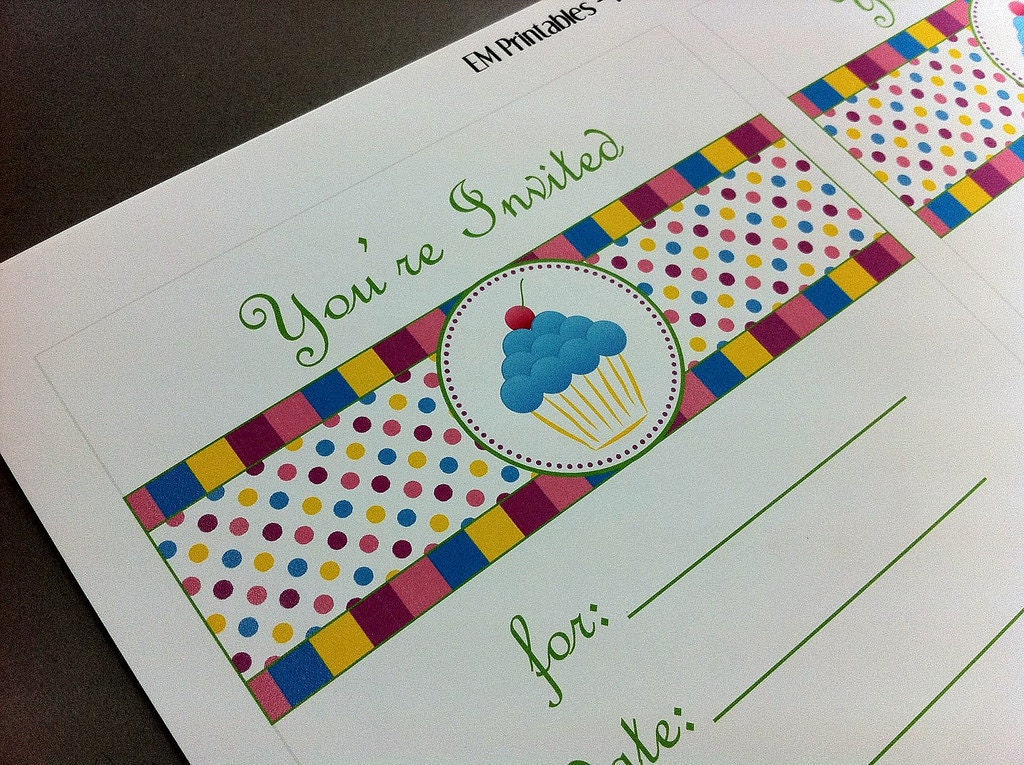 EM Printables -
You're Invited
for:
Date: